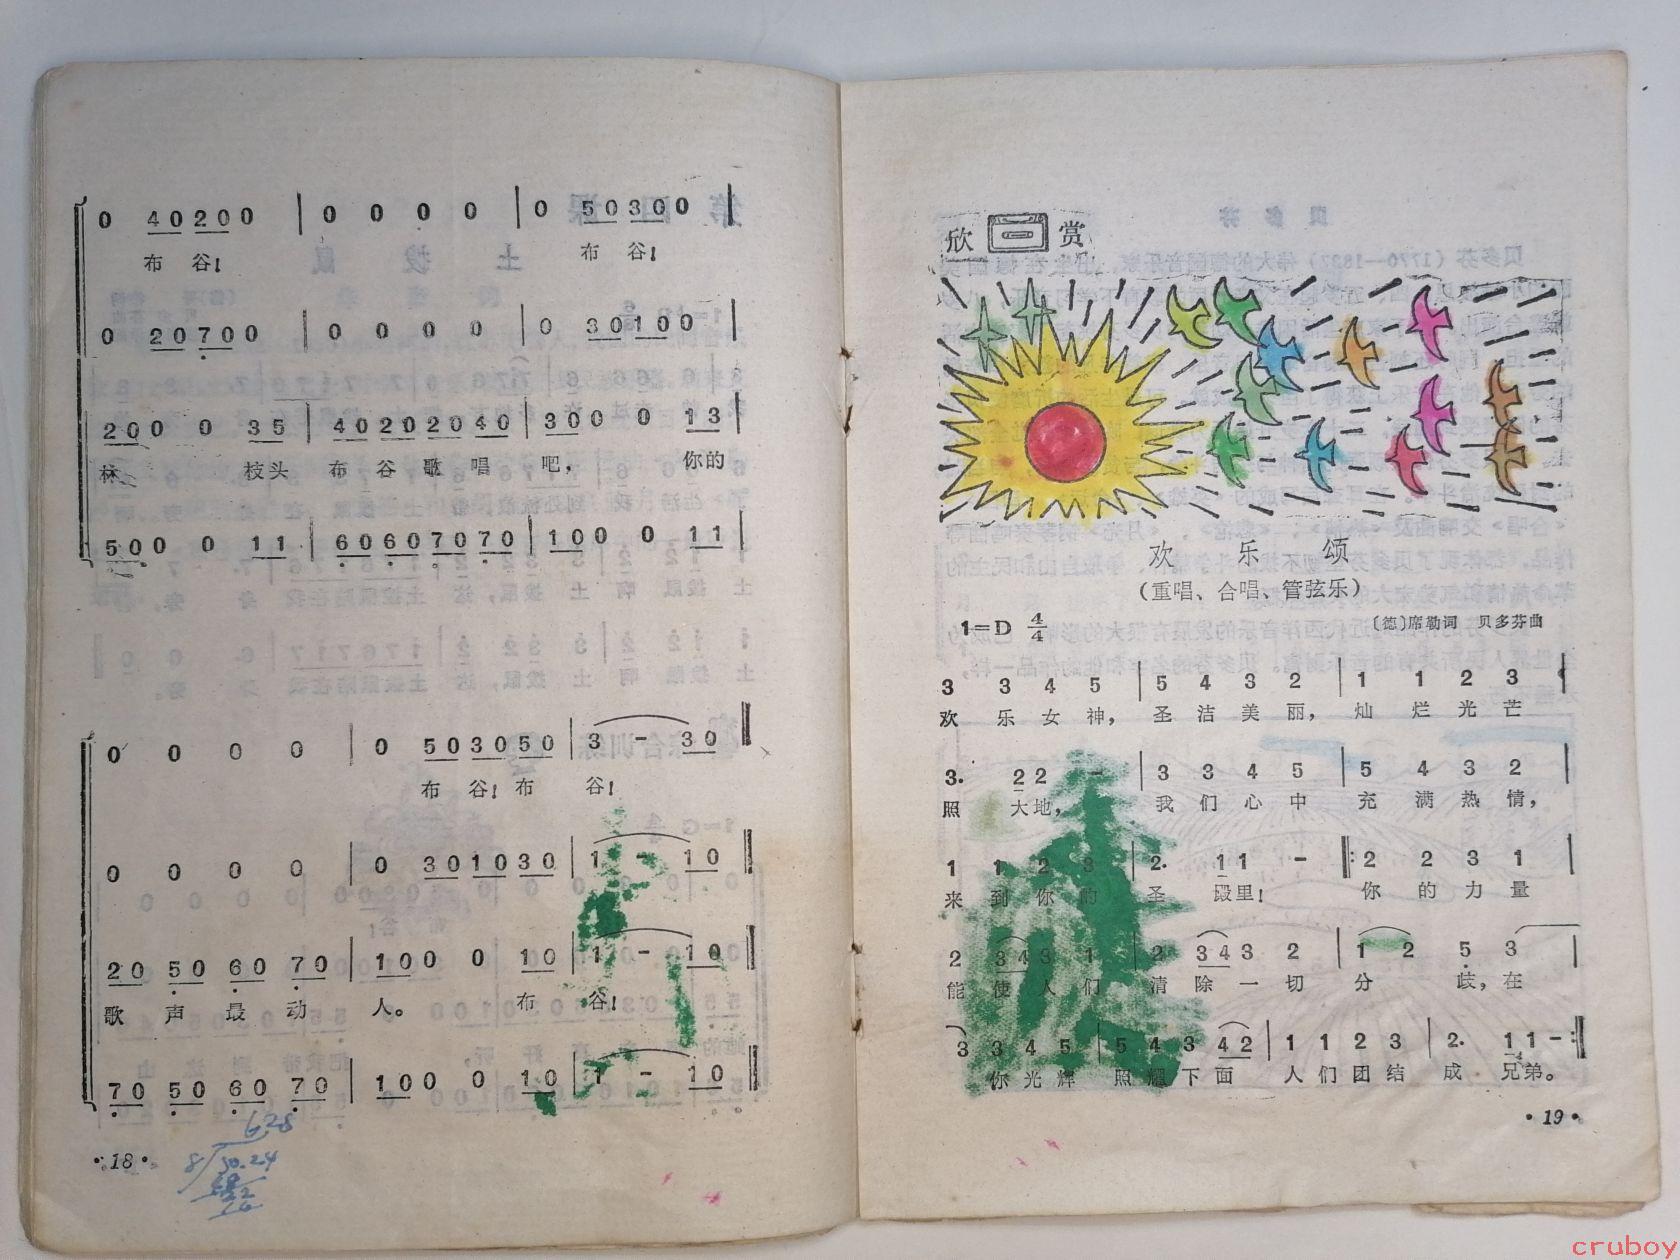 0 4 0 2 0 0 | 0 0 0 0 | 0 5 0 3 0 0 |
布 谷! 布 谷!
0 2 0 7 0 0 | 0 0 0 0 | 0 3 0 1 0 0 |
2 0 0 0 3 5 | 4 0 2 0 2 0 4 0 | 3 0 0 0 1 3 |
林, 枝头 布 谷 歌 唱 吧, 你的
5 0 0 0 1 1 | 6 0 6 0 7 0 7 0 | 1 0 0 0 1 1 |
0 0 0 0 | 0 5 0 3 0 5 0 | 3 - 3 0 ‖
布 谷! 布 谷!
0 0 0 0 | 0 3 0 1 0 3 0 | 1 - 1 0 ‖
2 0 5 0 6 0 7 0 | 1 0 0 0 1 0 | 1 - 1 0 ‖
歌 声 最 动 人。 布 谷!
7 0 5 0 6 0 7 0 | 1 0 0 0 1 0 | 1 - 1 0 ‖
·18·
628
8 50.24
欣 赏
欢 乐 颂
(重唱、合唱、管弦乐)
1=D 4/4 〔德〕席勒词 贝多芬曲
3 3 4 5 | 5 4 3 2 | 1 1 2 3 |
欢 乐 女 神, 圣 洁 美 丽, 灿 烂 光 芒
3. 2 2 - | 3 3 4 5 | 5 4 3 2 |
照 大地, 我 们 心 中 充 满 热 情,
1 1 2 3 | 2. 1 1 - ‖: 2 2 3 1 |
来 到 你 的 圣 殿里! 你 的 力 量
2 3 4 3 1 | 2 3 4 3 2 | 1 2 5 3 |
能 使 人 们 清 除 一 切 分 歧, 在
3 3 4 5 | 5 4 3 4 2 | 1 1 2 3 | 2. 1 1 - :‖
你 光 辉 照 耀 下 面 人 们 团 结 成 兄弟。
·19·
cruboy